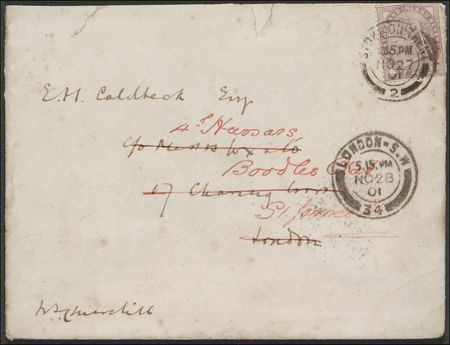 E.H. Caldbeck Esq
4th Hussars
c/o Messrs Cox & Co
Boodles Club
17 Charing Cross
St James
London
W.S. Churchill
5.15 PM
NO 27
01
2
LONDON·S.W
5.15 PM
NO 28
01
34